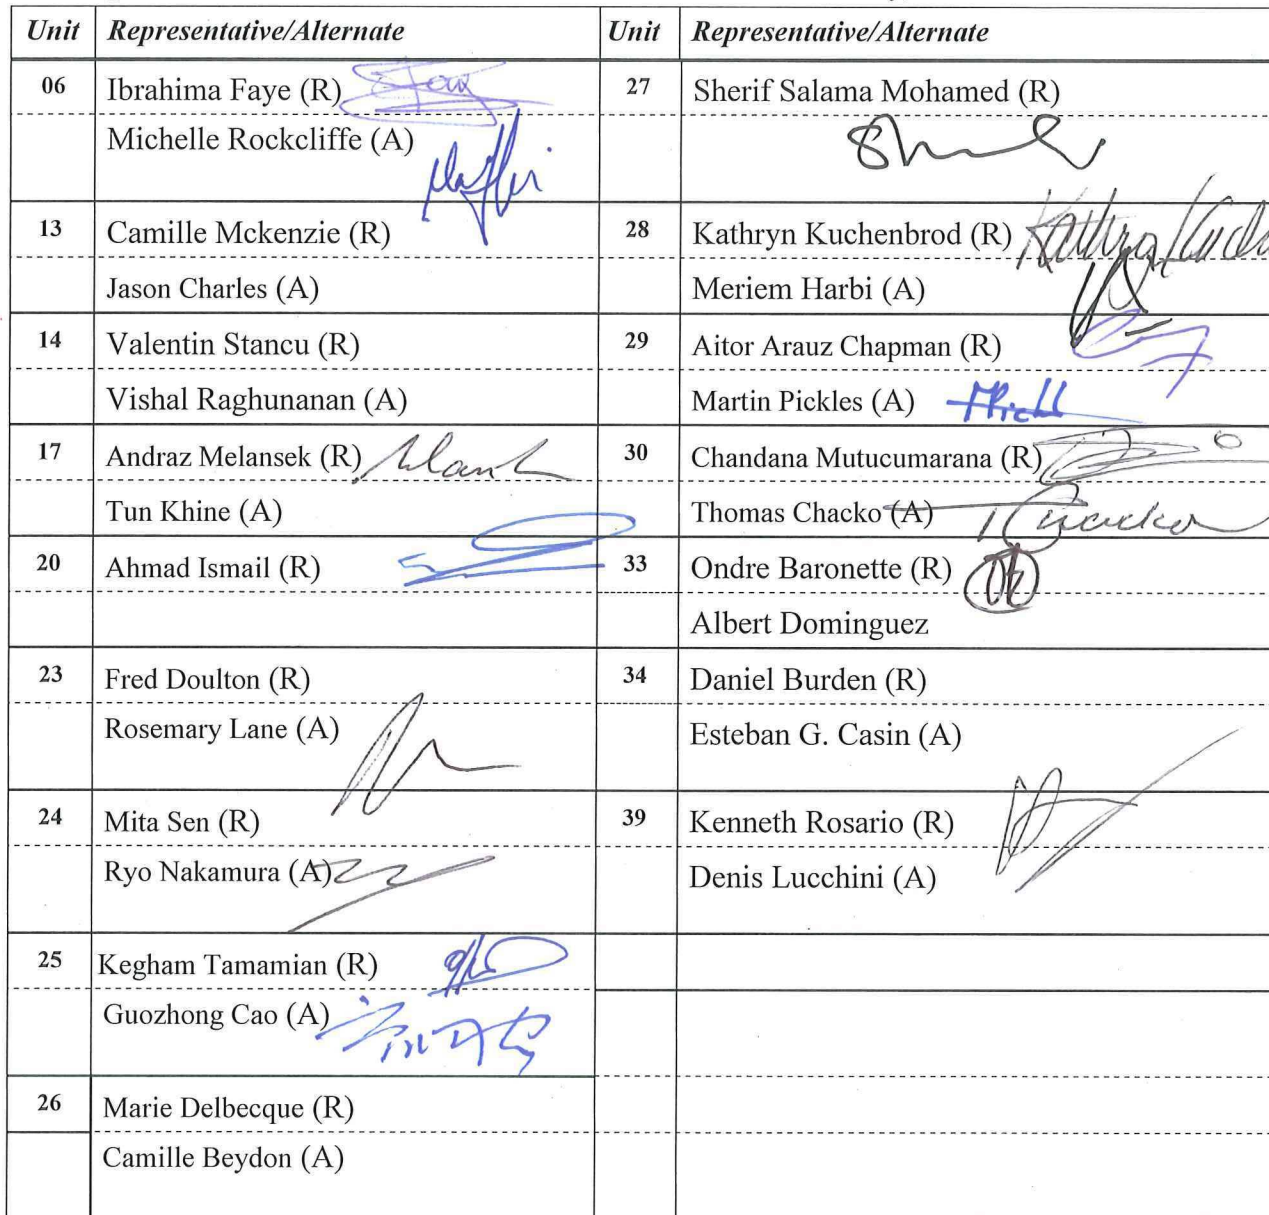 Unit Representative/Alternate Unit Representative/Alternate
06 Ibrahima Faye (R) 27 Sherif Salama Mohamed (R)
Michelle Rockcliffe (A)
13 Camille Mckenzie (R) 28 Kathryn Kuchenbrod (R)
Jason Charles (A) Meriem Harbi (A)
14 Valentin Stancu (R) 29 Aitor Arauz Chapman (R)
Vishal Raghunanan (A) Martin Pickles (A)
17 Andraz Melansek (R) 30 Chandana Mutucumarana (R)
Tun Khine (A) Thomas Chacko (A)
20 Ahmad Ismail (R) 33 Ondre Baronette (R)
Albert Dominguez
23 Fred Doulton (R) 34 Daniel Burden (R)
Rosemary Lane (A) Esteban G. Casin (A)
24 Mita Sen (R) 39 Kenneth Rosario (R)
Ryo Nakamura (A) Denis Lucchini (A)
25 Kegham Tamamian (R)
Guozhong Cao (A)
26 Marie Delbecque (R)
Camille Beydon (A)